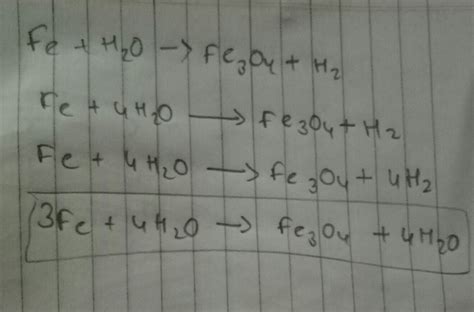 Fe + H₂O → Fe₃O₄ + H₂
Fe + 4H₂O → Fe₃O₄ + H₂
Fe + 4H₂O → Fe₃O₄ + 4H₂
3Fe + 4H₂O → Fe₃O₄ + 4H₂O